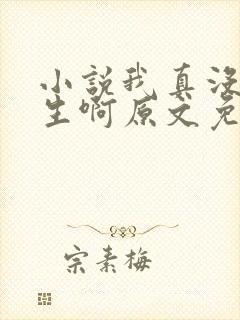 小說我真没
生啊原文免
宗素梅